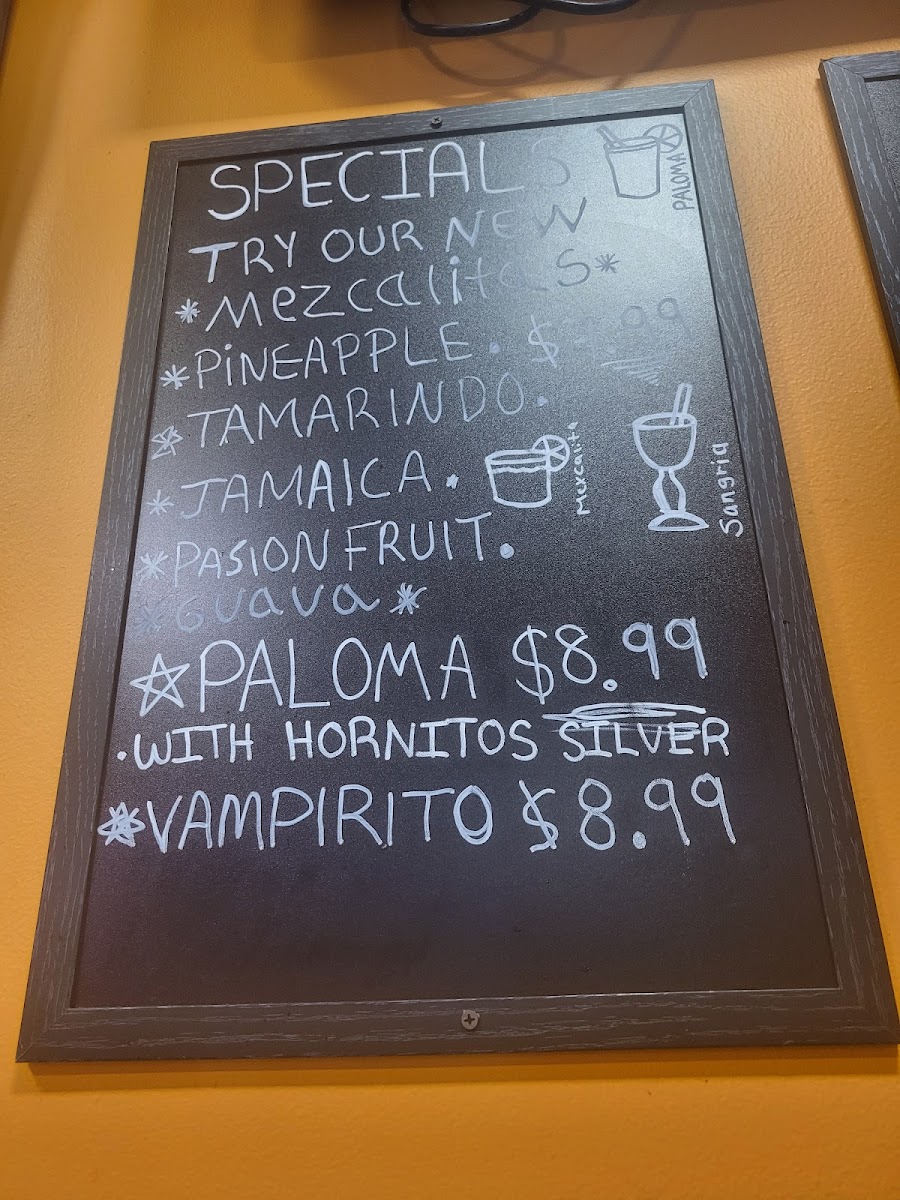 SPECIALS
PALOMA
TRY OUR NEW
*Mezcalitas*
*PiNEAPPLE.
*TAMARINDO.
*JAMAICA.
Mexcalito
Sangria
*PASION FRUIT.
*Guava*
☆PALOMA $8.99
.WITH HORNITOS SILVER
*VAMPIRITO $8.99